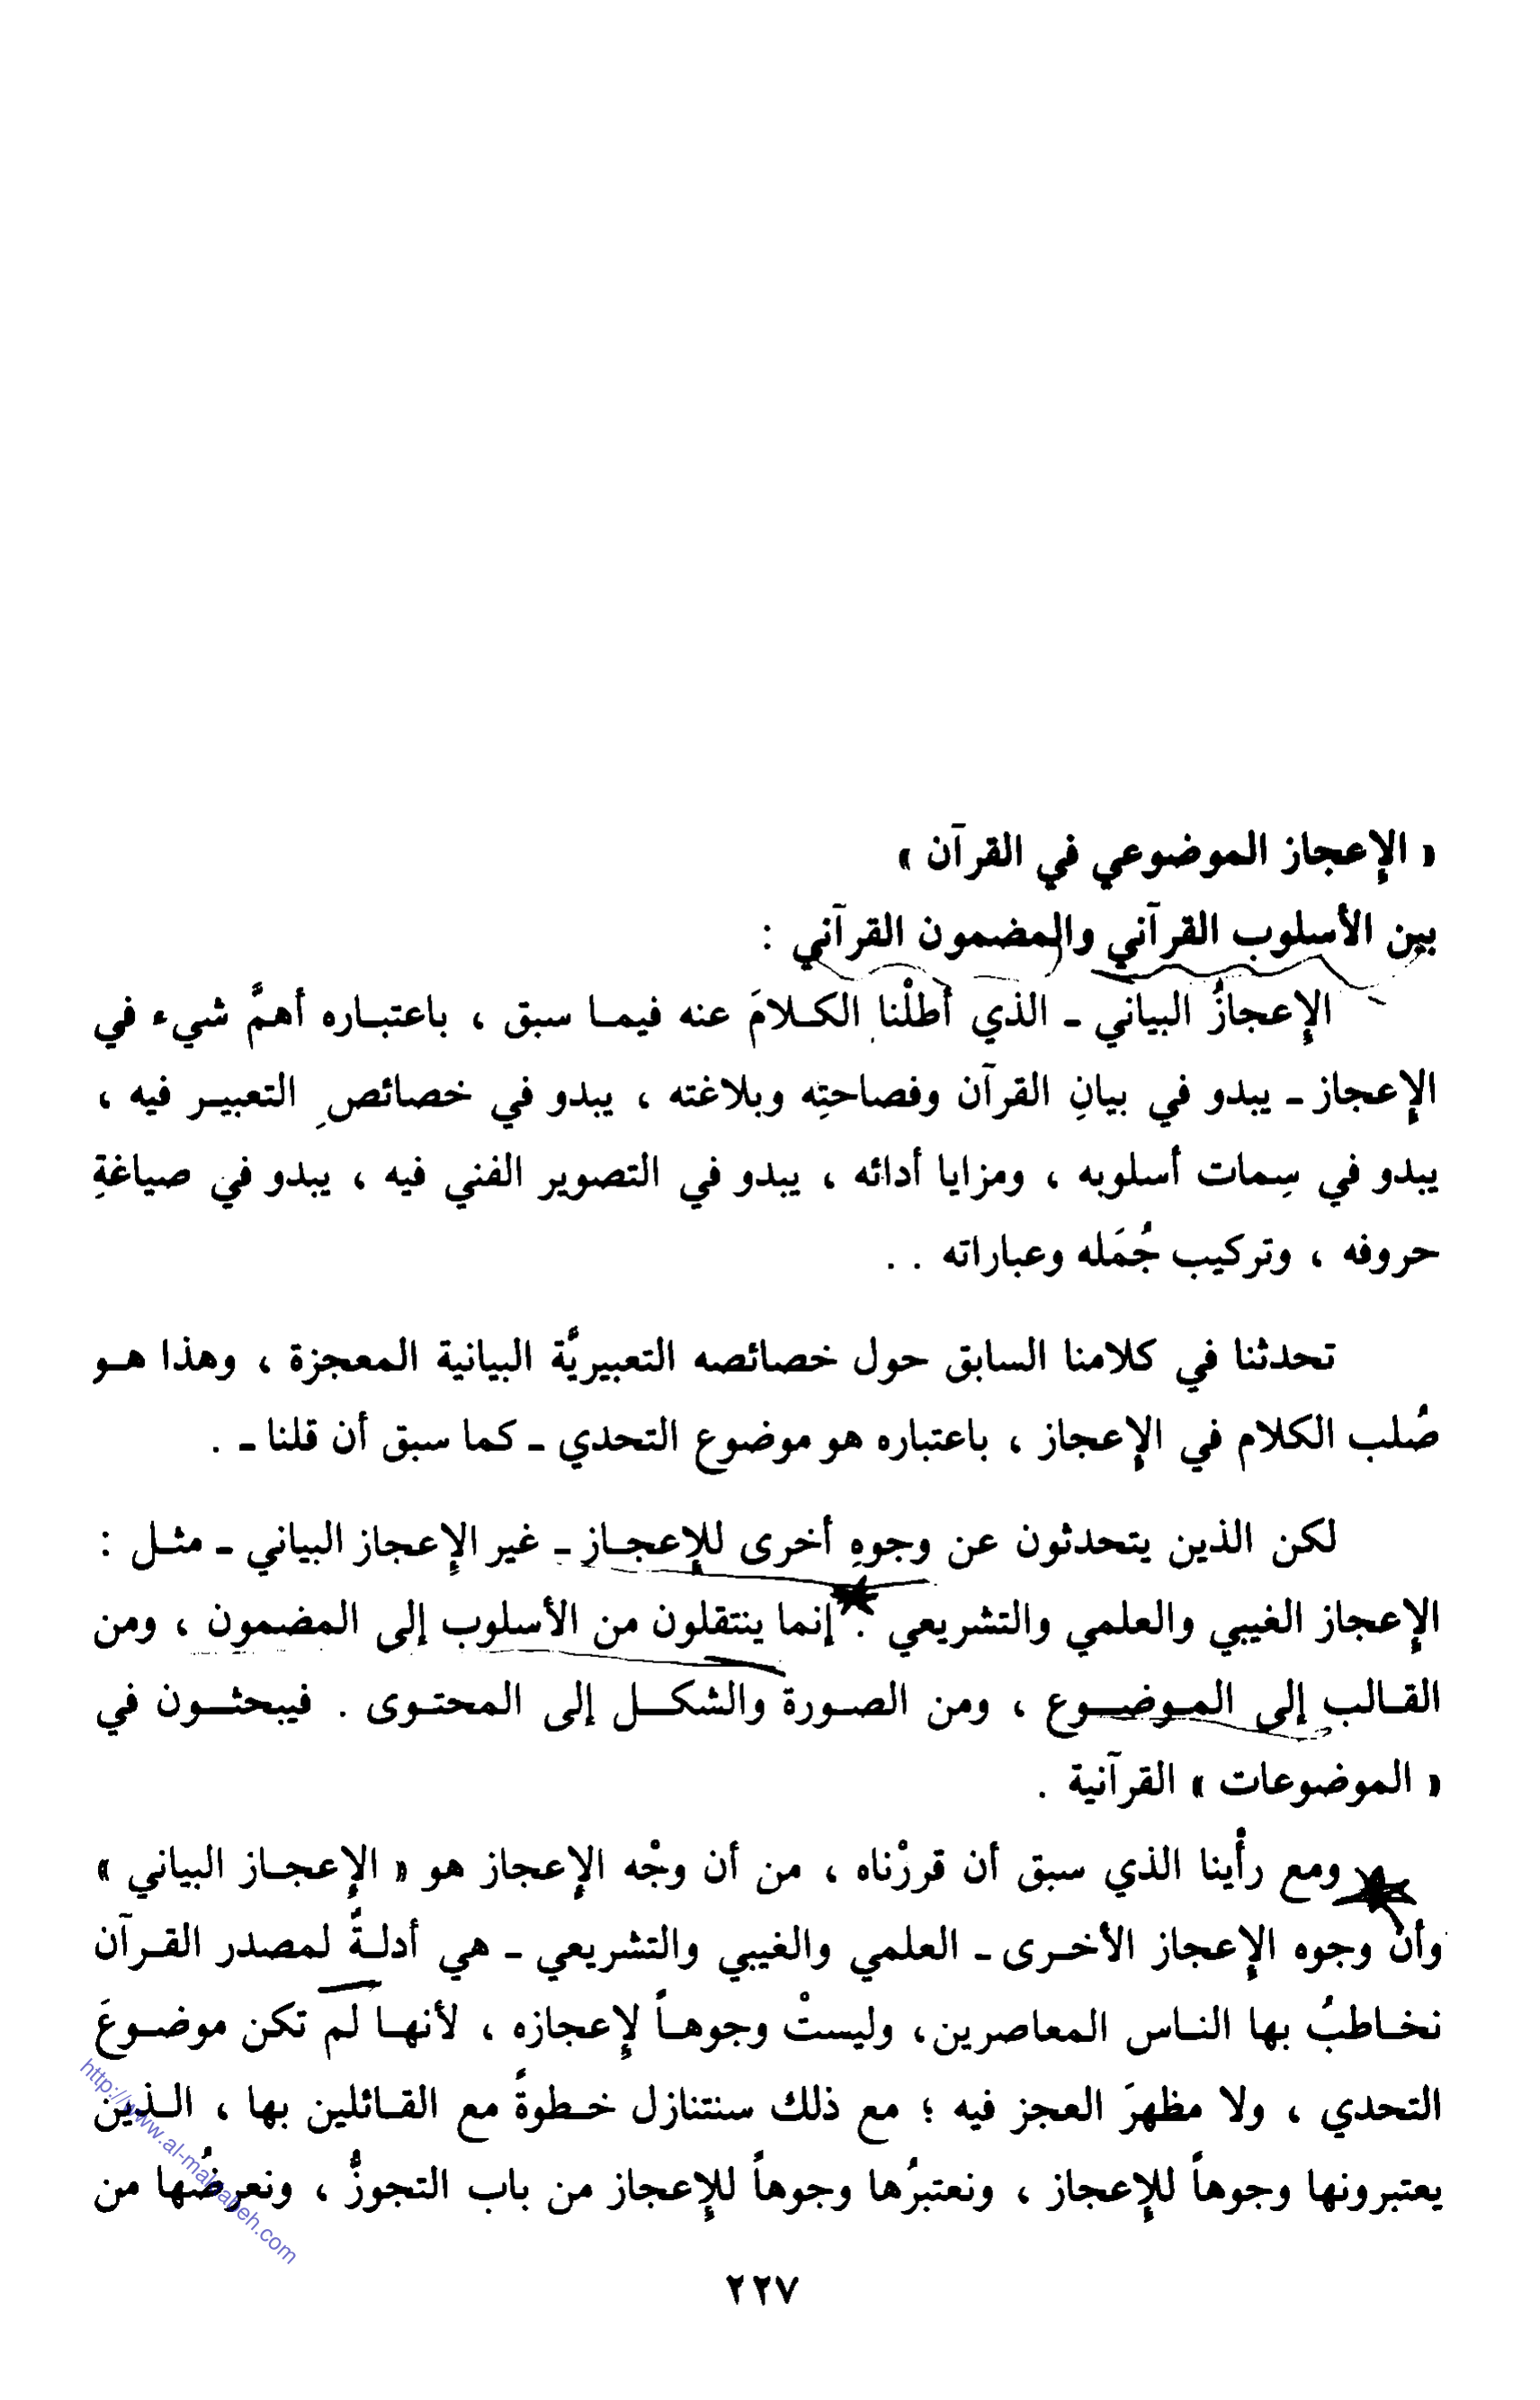 « الإعجاز الموضوعي في القرآن »
بين الأسلوب القرآني والمضمون القرآني :
الإعجازُ البياني - الذي أطلْنا الكلامَ عنه فيما سبق ، باعتباره أهمَّ شيء في
الإعجاز - يبدو في بيانِ القرآن وفصاحتِه وبلاغته ، يبدو في خصائصِ التعبير فيه ،
يبدو في سِمات أسلوبه ، ومزايا أدائه ، يبدو في التصوير الفني فيه ، يبدو في صياغةِ
حروفه ، وتركيب جُمَله وعباراته . .
تحدثنا في كلامنا السابق حول خصائصه التعبيريَّة البيانية المعجزة ، وهذا هو
صُلب الكلام في الإعجاز ، باعتباره هو موضوع التحدي - كما سبق أن قلنا - .
لكن الذين يتحدثون عن وجوهِ أخرى للإعجاز - غير الإعجاز البياني - مثل :
الإعجاز الغيبي والعلمي والتشريعي . إنما ينتقلون من الأسلوب إلى المضمون ، ومن
القالب إلى الموضوع ، ومن الصورة والشكل إلى المحتوى . فيبحثون في
« الموضوعات » القرآنية .
ومع رأْينا الذي سبق أن قررْناه ، من أن وجْه الإعجاز هو « الإعجاز البياني »
وأن وجوه الإعجاز الأخرى - العلمي والغيبي والتشريعي - هي أدلةٌ لمصدر القرآن
نخاطبُ بها الناس المعاصرين، وليستْ وجوهاً لإعجازه ، لأنها لم تكن موضوعَ
التحدي ، ولا مظهرَ العجز فيه ؛ مع ذلك سنتنازل خطوةً مع القائلين بها ، الذين
يعتبرونها وجوهاً للإعجاز ، ونعتبرُها وجوهاً للإعجاز من باب التجوزُّ ، ونعرضُها من
٢٢٧
http://www.al-maktabeh.com